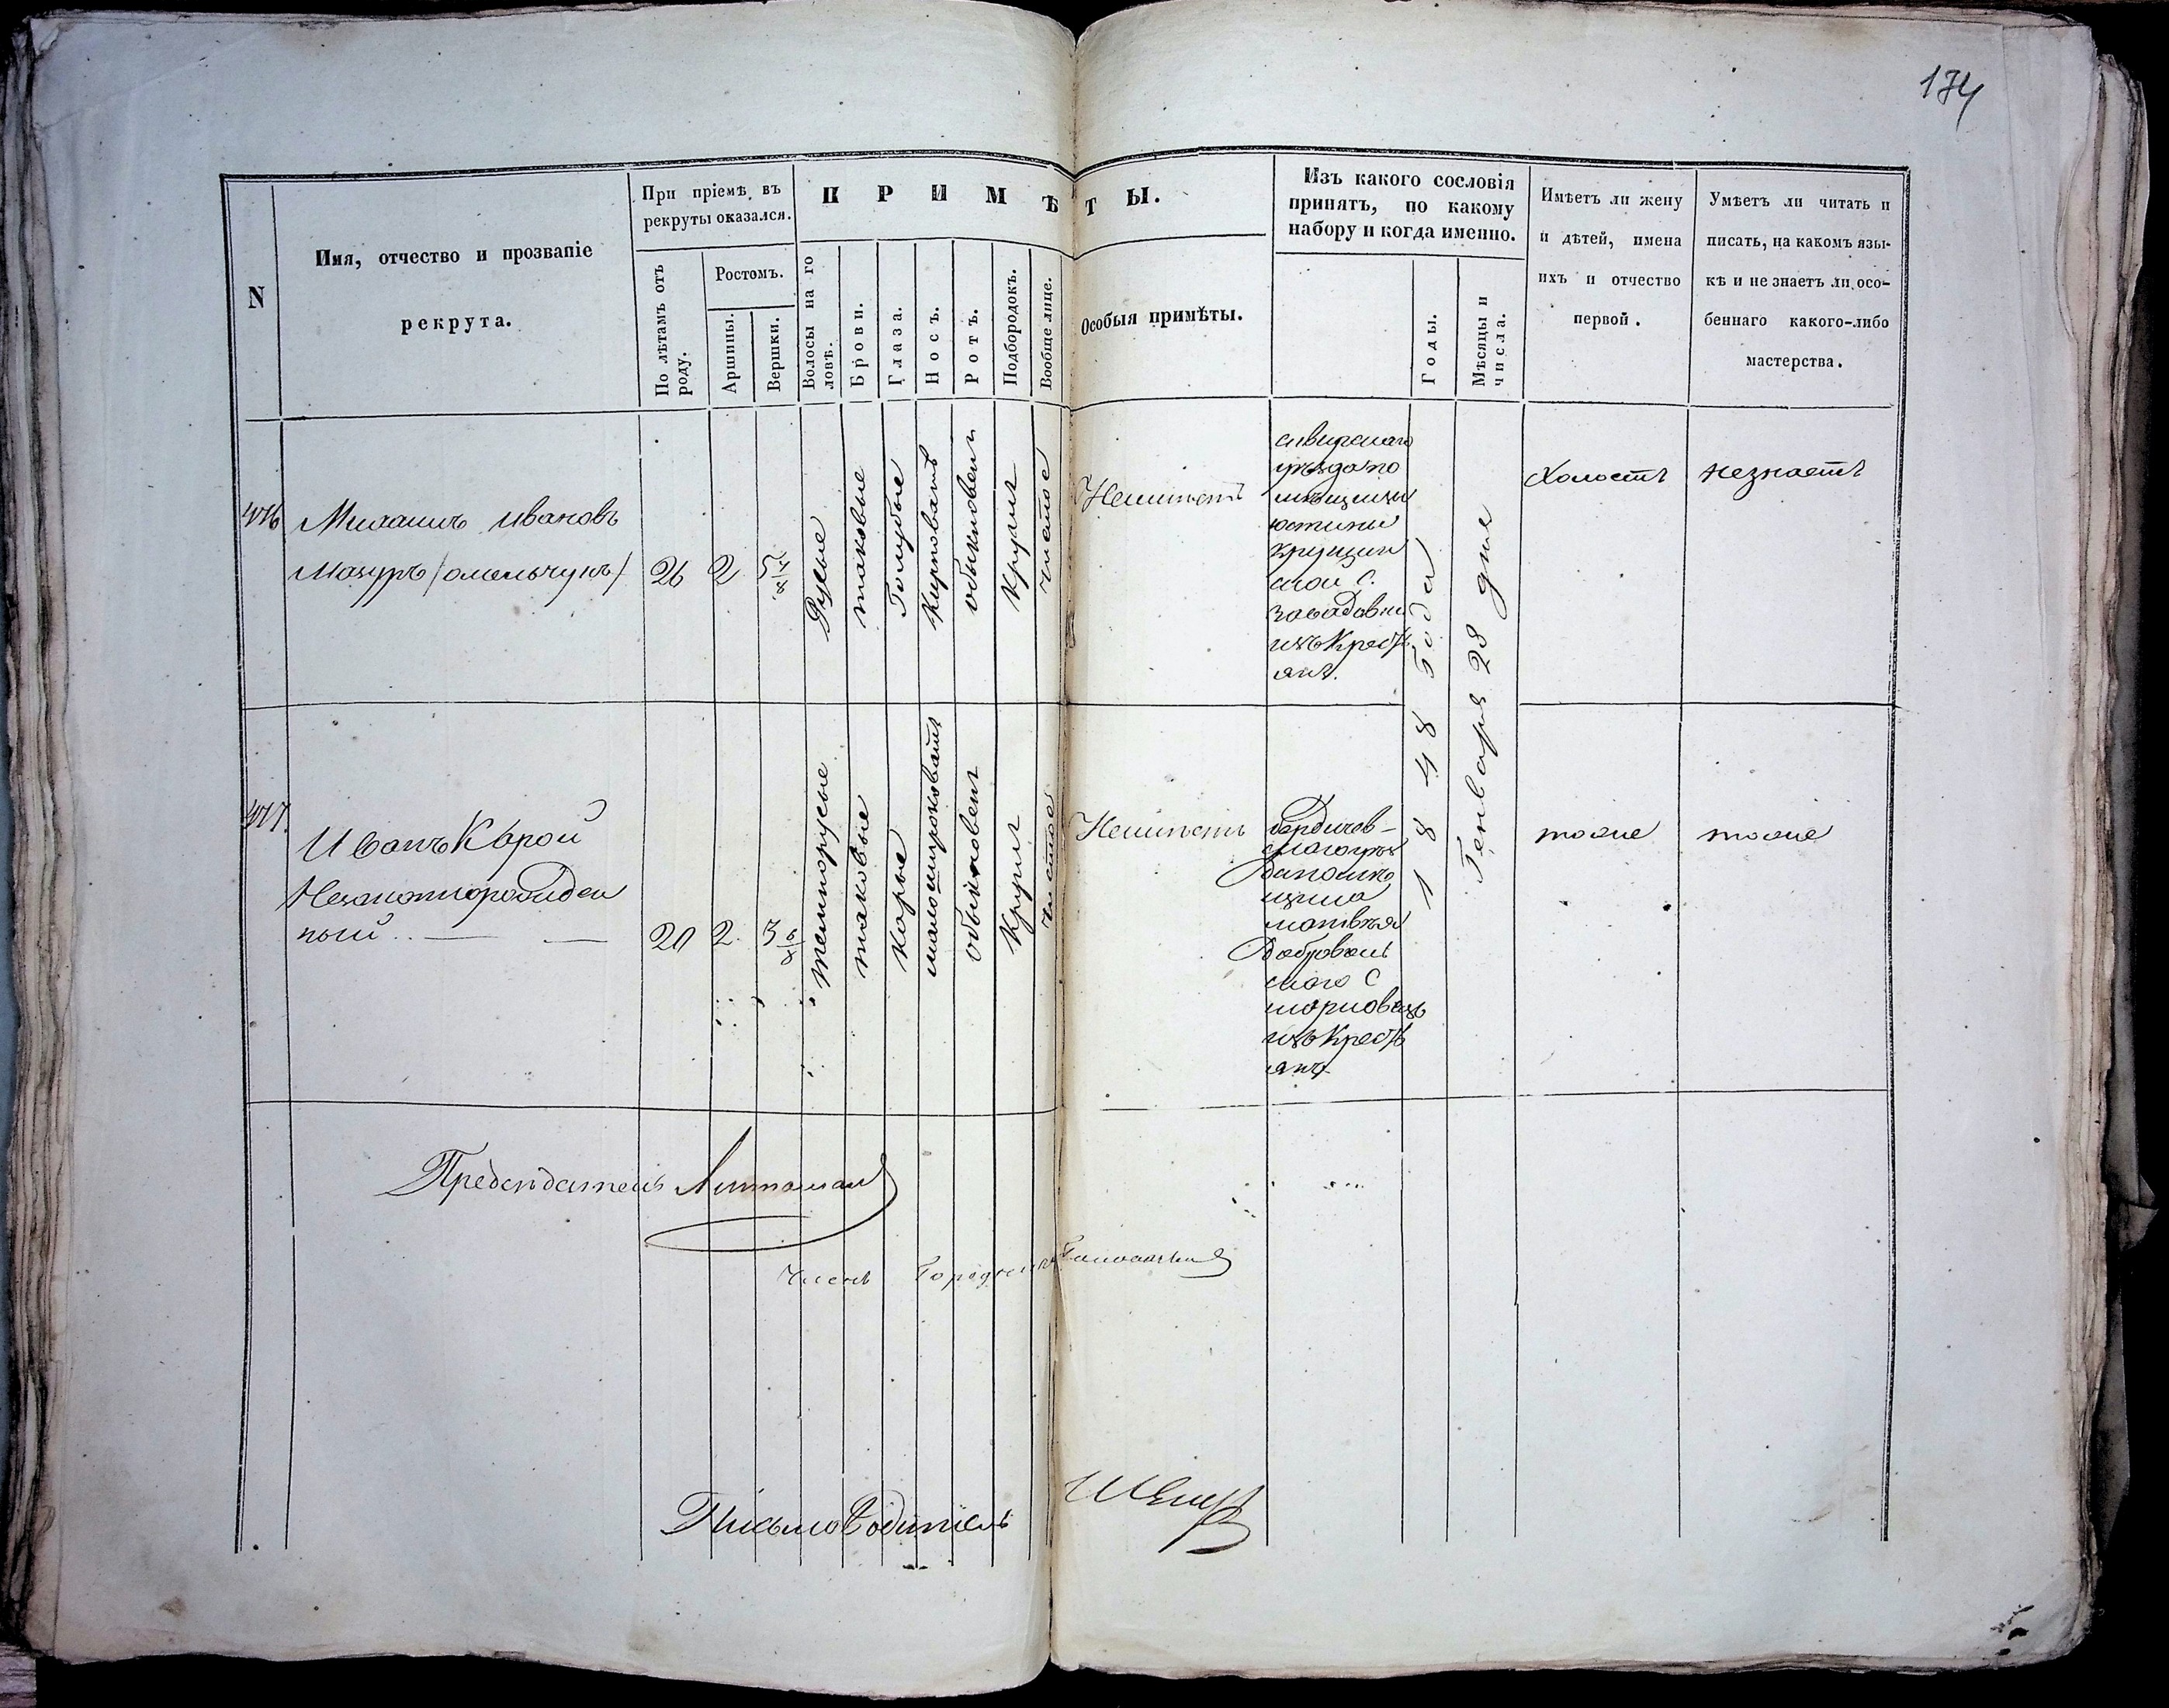 174
N
Имя, отчество и прозваніе
рекрута.
При пріемѣ въ
рекруты оказался.
По лѣтамъ отъ
роду.
Ростомъ.
Аршины.
Вершки.
ПРИМѢТЫ.
Волосы на го
ловѣ.
Брови.
Глаза.
Носъ.
Ротъ.
Подбородокъ.
Вообще лице.
Особыя примѣты.
Изъ какого сословія
принятъ, по какому
набору и когда именно.
Годы.
Мѣсяцы и
числа.
Имѣетъ ли жену
и дѣтей, имена
ихъ и отчество
первой.
Умѣетъ ли читать и
писать, на какомъ язы-
кѣ и не знаетъ ли осо-
беннаго какого-либо
мастерства.
Ивановъ
Мазуръ (омельчукъ)
26
2
5 4/8
Русые
таковые
Голубые
Курноватъ
обыкновен
Кругл
чистое
Неимѣетъ
уѣзда по
мѣщицы
юстины
С.
изъ Кресть
янъ.
1848 Года
Генваря 28 дня
Холостъ
незнаетъ
Иванъ Карой
ный
20
2
3 6/8
темнорусые
таковые
карые
малошироковатъ
обыкновен
Кругл
чистое
Неимѣетъ
бердичев-
скаго уѣз
да помѣ
щика
матвѣя
Добровол
скаго С
изъ Кресть
янъ
тоже
тоже
Предсѣдатель
Членъ
Письмоводитель